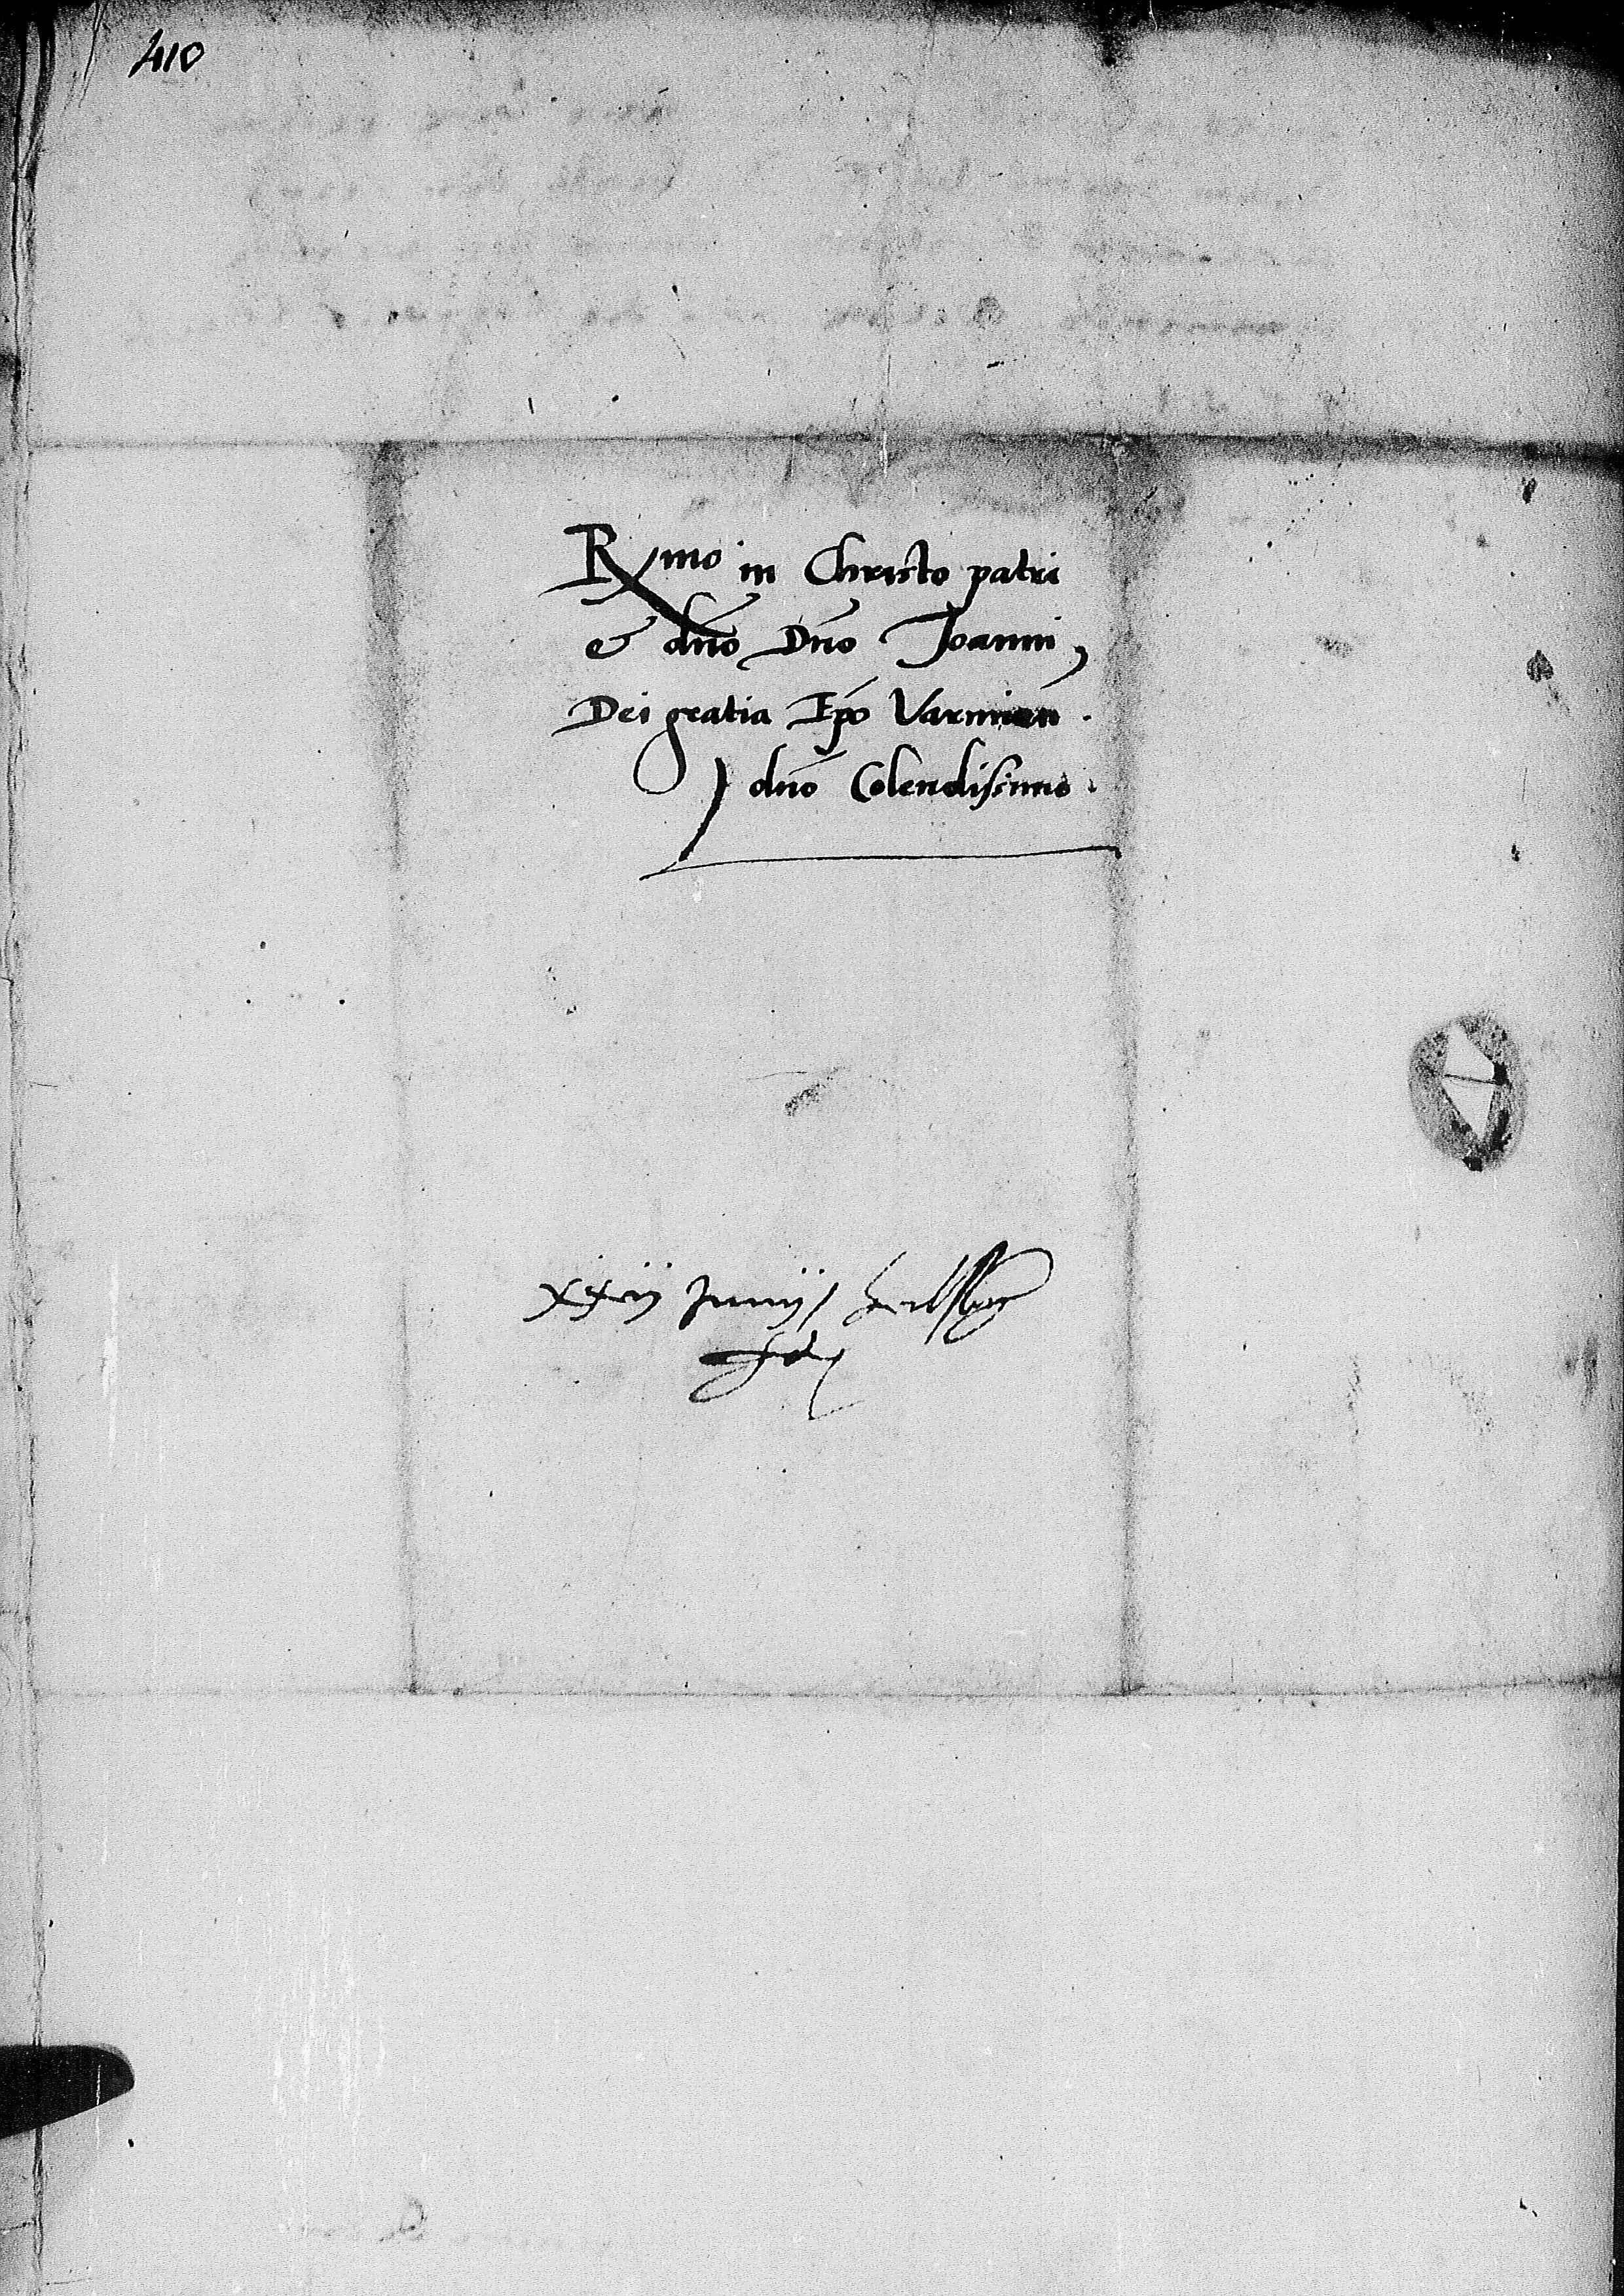 410
Rmo in Christo patri
& dno Dno Joanni,
Dei gratia Epo Varmien.
dno Colendissimo.
Junij